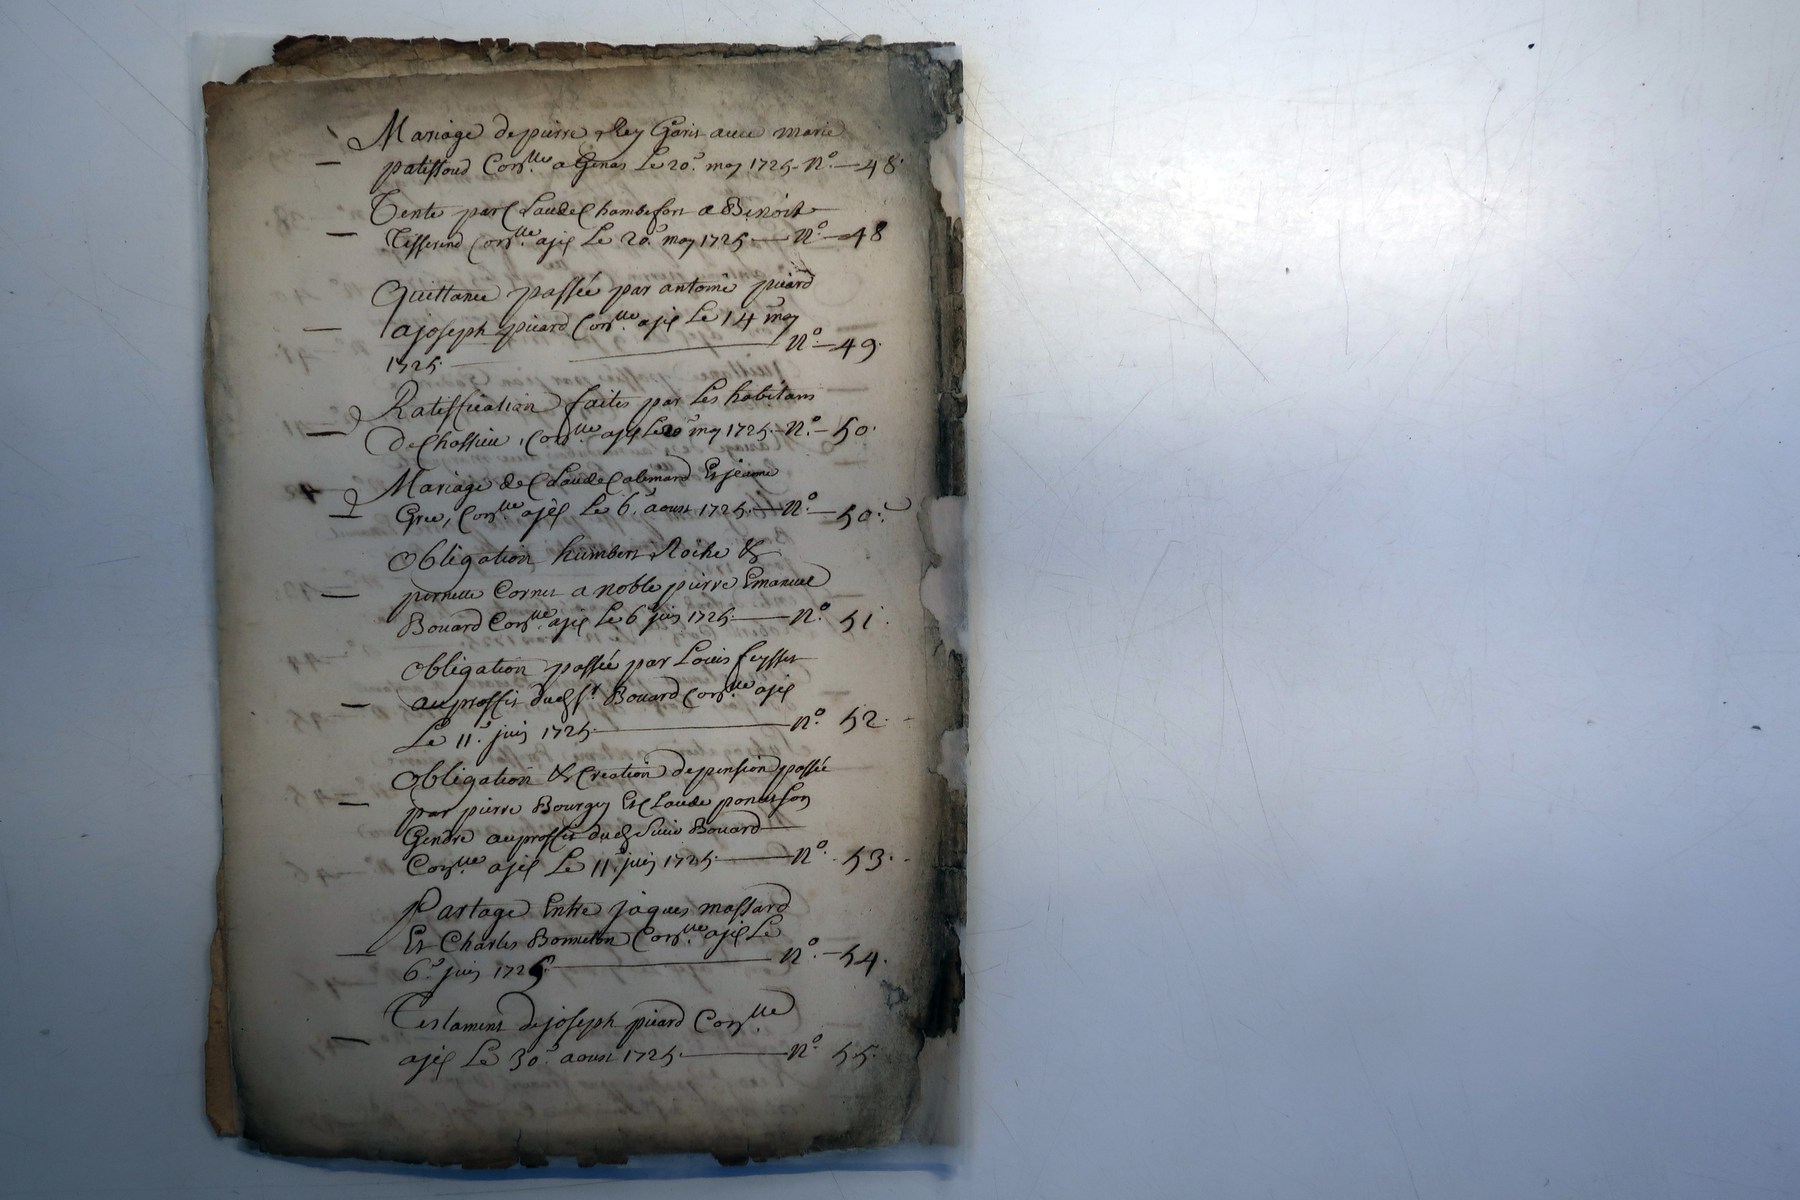 Mariage de pierre Rey Garis avec marie
patissoud Con.lle a Genas Le 20.e may 1725 - N.o — 48.
Vente par Claude Chambefort a Benoit
Tisserend Con.lle ajis Le 20.e may 1725 — N.o — 48
Quittance passée par antoine picard
a joseph picard Con.lle ajis Le 14e may
1725. — N.o — 49.
Ratiffication faites par Les habitans
de Chassieu, Con.lle ajis Le 20e may 1725. - N.o - 50.
Mariage de Claude Calemard Et jeanne
Gree, Con.lle ajis Le 6.e aoust 1725. — N.o — 50.
Obligation humbert Roche &
pernette Cornet a noble pierre Emanuel
Bouard Con.lle ajis Le 6e juin 1725. — N.o 51.
Obligation passée par Louis feysset
au proffit dud. sr. Bouard Con.lle ajis
Le 11.e juin 1725 — N.o 52.
Obligation & Creation de pension passée
par pierre Bourgey Et Claude
Gendre au proffit dud. Sieur Bouard
Con.lle ajis Le 11.e juin 1725. — N.o 53.
Partage Entre jaques massard
Et Charles Bonneton Con.lle ajis Le
6.e juin 1725. — N.o — 54.
Testament de joseph picard Con.lle
ajis Le 30.e aoust 1725. — N.o 55.